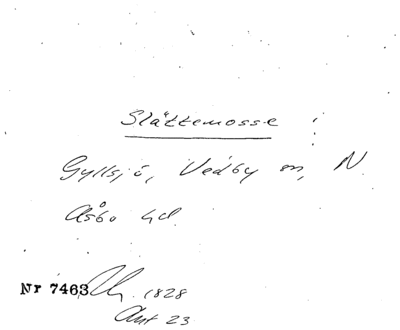 Slåttemosse
Gyllsjö, Vedby sn, N.
Åsbo hd.
Nr 7463 1828
Akt 23